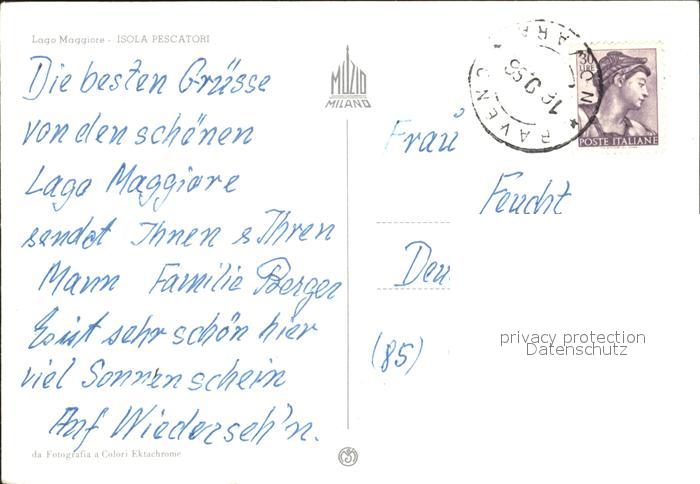 Lago Maggiore - ISOLA PESCATORI
Die besten Grüsse
von den schönen
Lago Maggiore
sendet Ihnen s Ihren
Mann Familie Berger
Es ist sehr schön hier
viel Sonnenschein
Auf Wiederseh'n.
da Fotografia a Colori Ektachrome
MUZIO
MILANO
30
LIRE
POSTE ITALIANE
BAVENO
Frau
Feucht
Deu
(85)
privacy protection
Datenschutz